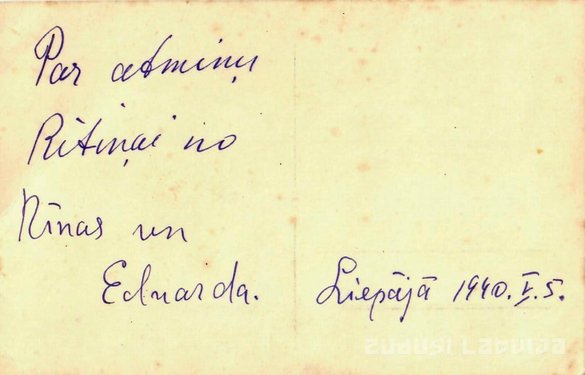 Par atmiņu
Ritiņai no
Nīnas un
Eduarda.
Liepājā 1940. V. 5.
zudusi Latvija